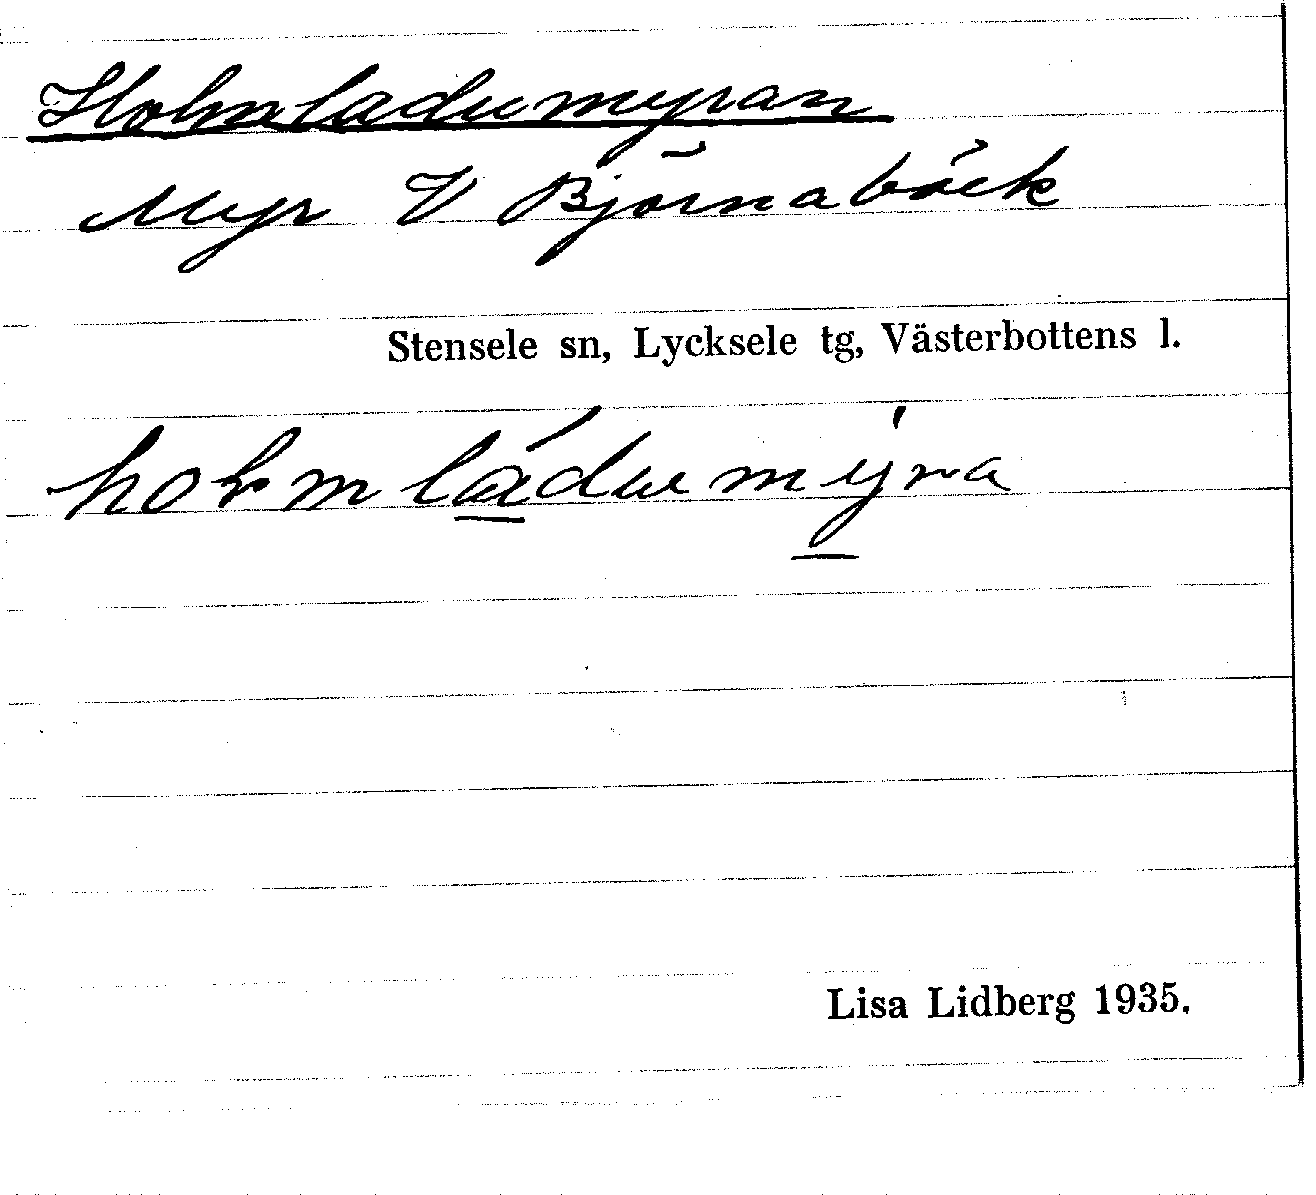 Holmladumyran
Myr V Björnabäck
Stensele sn, Lycksele tg, Västerbottens l.
holmládumýra
Lisa Lidberg 1935.